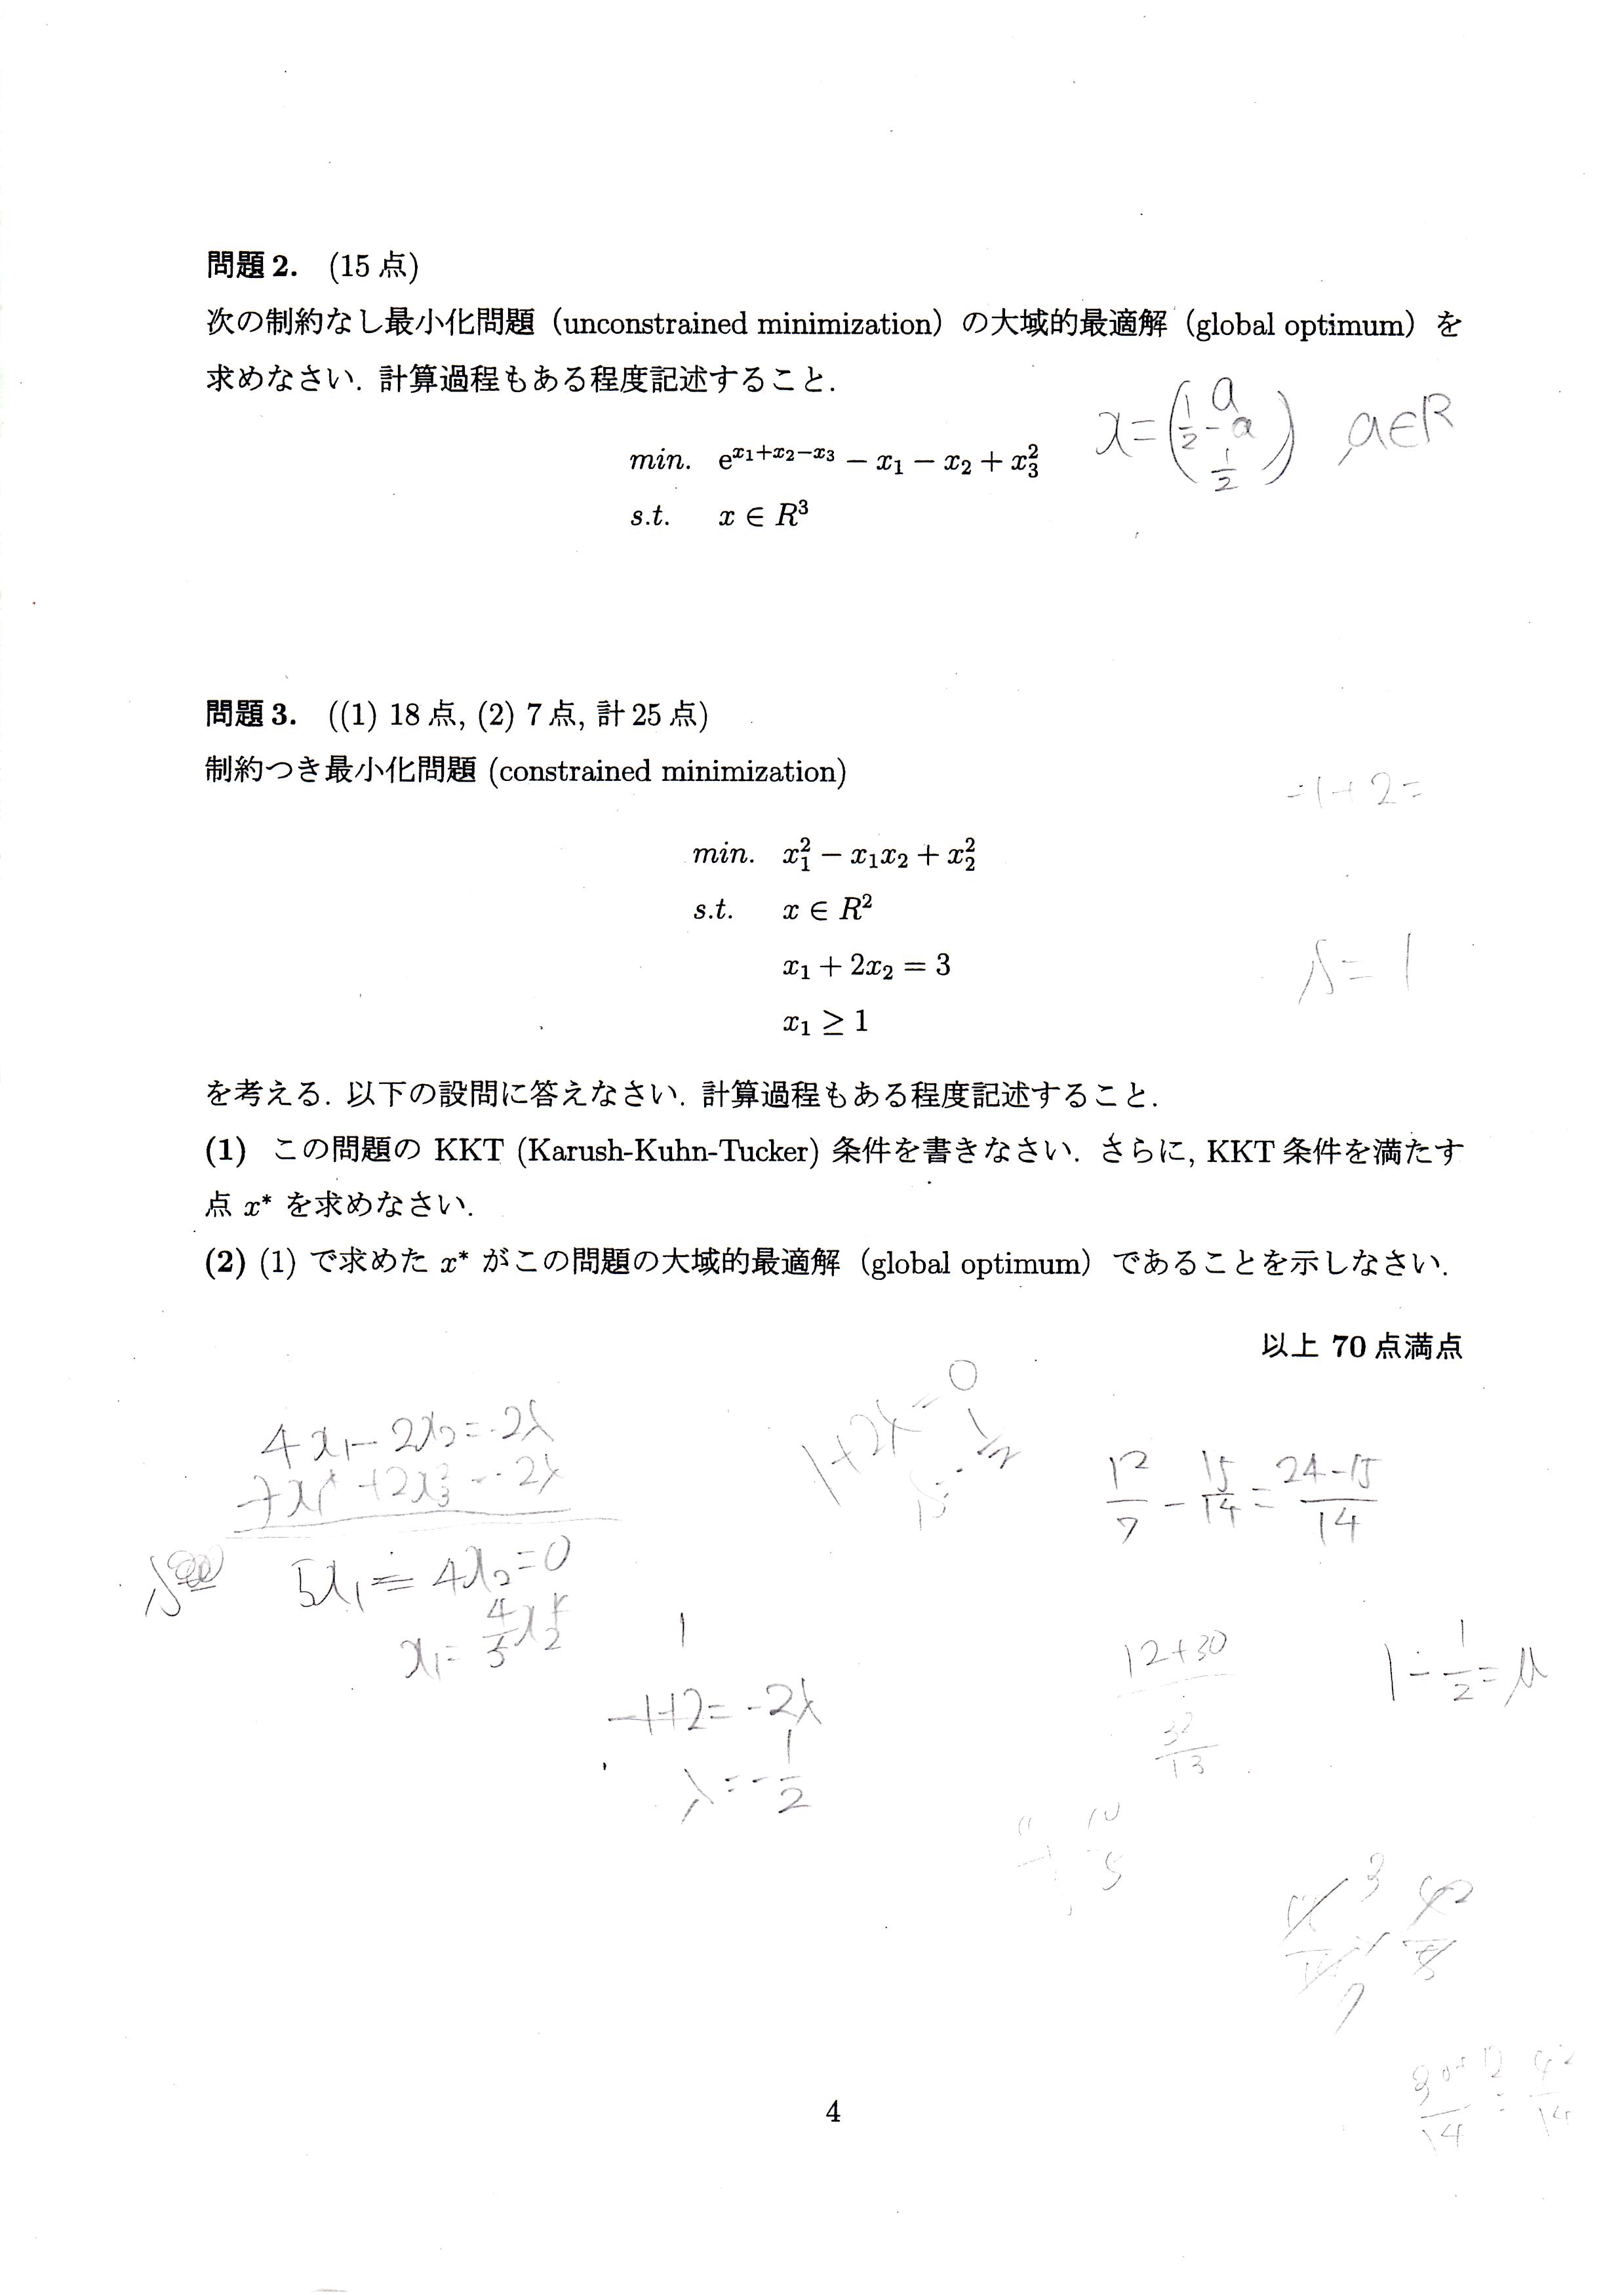 問題2. (15 点)
次の制約なし最小化問題（unconstrained minimization）の大域的最適解（global optimum）を
求めなさい. 計算過程もある程度記述すること.
min. e^{x_1+x_2-x_3} − x_1 − x_2 + x_3^2
s.t. x ∈ R^3
x = (a, 1/2 - a, 1/2) a∈R
問題3. ((1) 18 点, (2) 7 点, 計 25 点)
制約つき最小化問題 (constrained minimization)
-1+2=
min. x_1^2 − x_1x_2 + x_2^2
s.t. x ∈ R^2
x_1 + 2x_2 = 3
λ=1
x_1 ≥ 1
を考える. 以下の設問に答えなさい. 計算過程もある程度記述すること.
(1) この問題の KKT (Karush-Kuhn-Tucker) 条件を書きなさい. さらに, KKT 条件を満たす
点 x* を求めなさい.
(2) (1) で求めた x* がこの問題の大域的最適解（global optimum）であることを示しなさい.
以上 70 点満点
4x_1 - 2x_2 = -2λ
5x_1 = 4x_2 = 0
1+2λ=0
12/7 - 15/14 = (24-15)/14
-1+2=-2λ
λ=-1/2
12+30
1 - 1/2 = μ
4